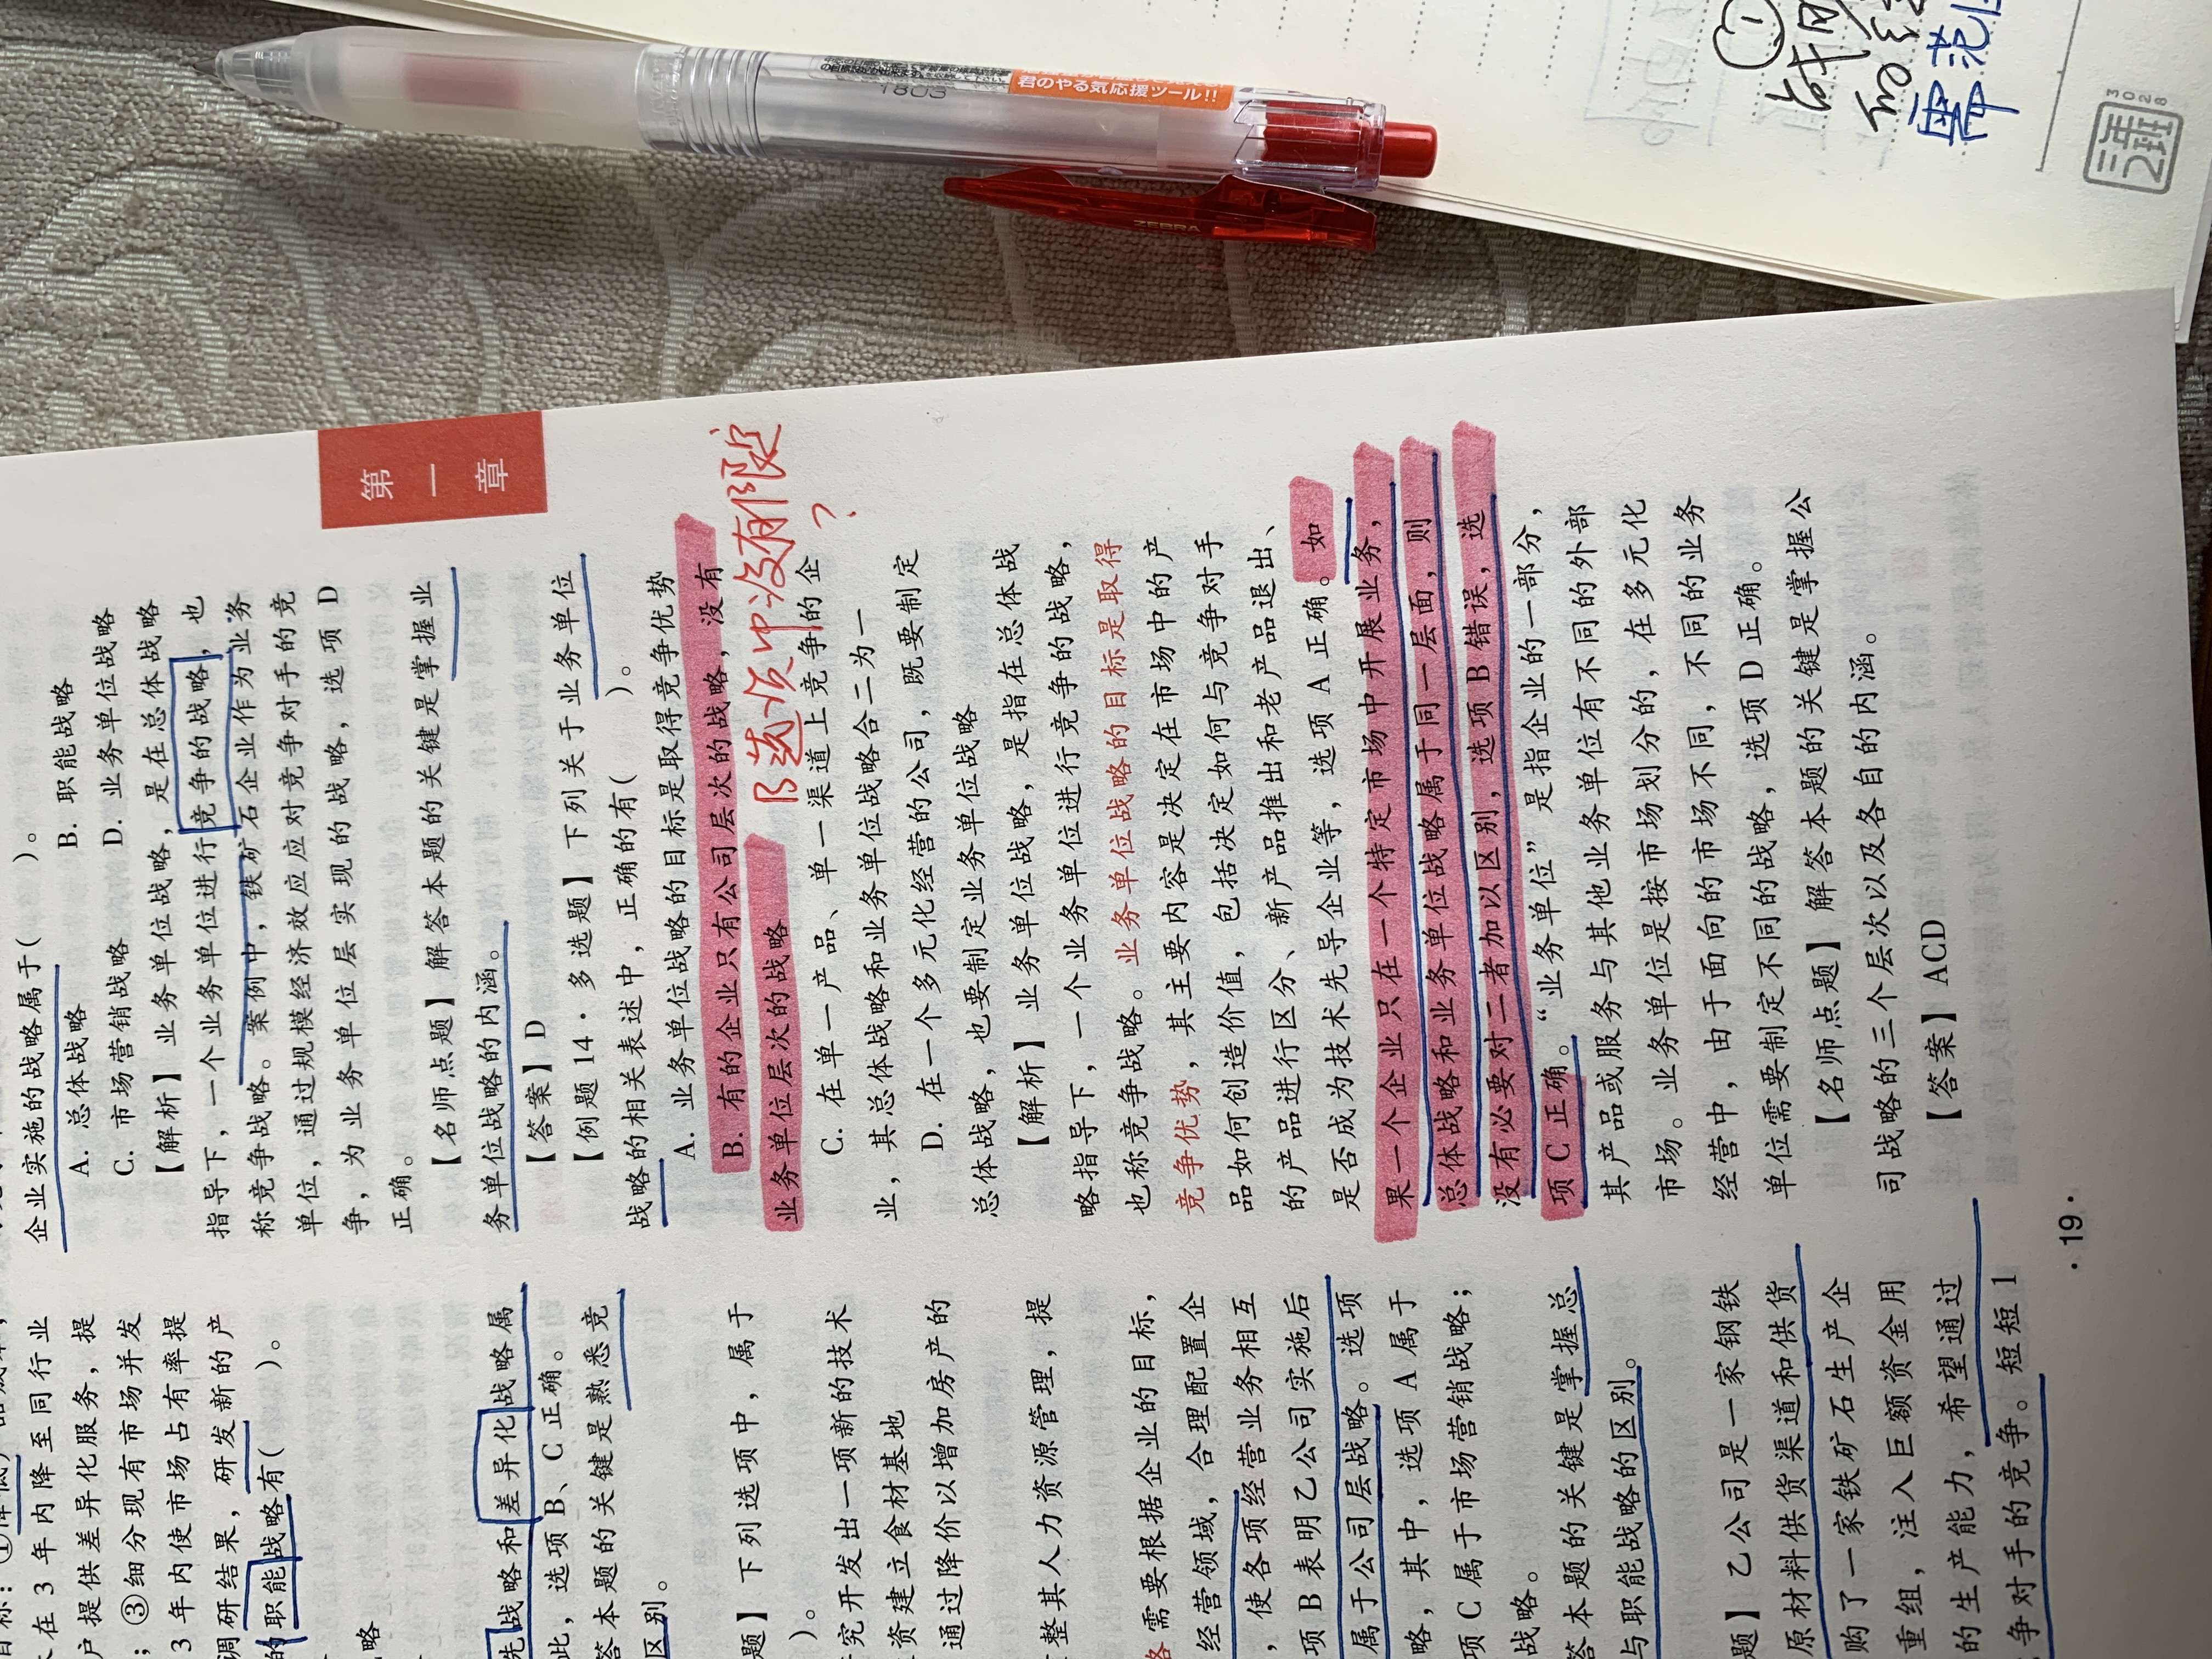 目标：①降低产品成本，
在 3 年内降至同行业
户提供差异化服务，提
；③细分现有市场并发
3 年内使市场占有率提
调研结果，研发新的产
的职能战略有(　　)。
略
先战略和差异化战略属
此，选项 B、C 正确。
答本题的关键是熟悉竞
区别。
题】下列选项中，属于
)。
究开发出一项新的技术
资建立食材基地
通过降价以增加房产的
整其人力资源管理，提
略需要根据企业的目标，
经营领域，合理配置企
，使各项经营业务相互
项 B 表明乙公司实施后
属于公司层战略。选项
略，其中，选项 A 属于
项 C 属于市场营销战略；
战略。
答本题的关键是掌握总
与职能战略的区别。
题】乙公司是一家钢铁
原材料供货渠道和供货
购了一家铁矿石生产企
重组，注入巨额资金用
的生产能力，希望通过
争对手的竞争。短短 1
企业实施的战略属于(　　)。
A. 总体战略
B. 职能战略
C. 市场营销战略
D. 业务单位战略
【解析】业务单位战略，是在总体战略
指导下，一个业务单位进行竞争的战略，也
称竞争战略。案例中，铁矿石企业作为业务
单位，通过规模经济效应应对竞争对手的竞
争，为业务单位层实现的战略，选项 D
正确。
【名师点题】解答本题的关键是掌握业
务单位战略的内涵。
【答案】D
【例题14·多选题】下列关于业务单位
战略的相关表述中，正确的有(　　)。
A. 业务单位战略的目标是取得竞争优势
B. 有的企业只有公司层次的战略，没有
业务单位层次的战略
B选项中没有限定
？
C. 在单一产品、单一渠道上竞争的企
业，其总体战略和业务单位战略合二为一
D. 在一个多元化经营的公司，既要制定
总体战略，也要制定业务单位战略
【解析】业务单位战略，是指在总体战
略指导下，一个业务单位进行竞争的战略，
也称竞争战略。业务单位战略的目标是取得
竞争优势，其主要内容是决定在市场中的产
品如何创造价值，包括决定如何与竞争对手
的产品进行区分、新产品推出和老产品退出、
是否成为技术先导企业等，选项 A 正确。如
果一个企业只在一个特定市场中开展业务，
总体战略和业务单位战略属于同一层面，则
没有必要对二者加以区别，选项 B 错误，选
项 C 正确。“业务单位”是指企业的一部分，
其产品或服务与其他业务单位有不同的外部
市场。业务单位是按市场划分的，在多元化
经营中，由于面向的市场不同，不同的业务
单位需要制定不同的战略，选项 D 正确。
【名师点题】解答本题的关键是掌握公
司战略的三个层次以及各自的内涵。
【答案】ACD
·19·
第一章
君のやる気応援ツール!!
ZEBRA
1803
①
三年二班
3028